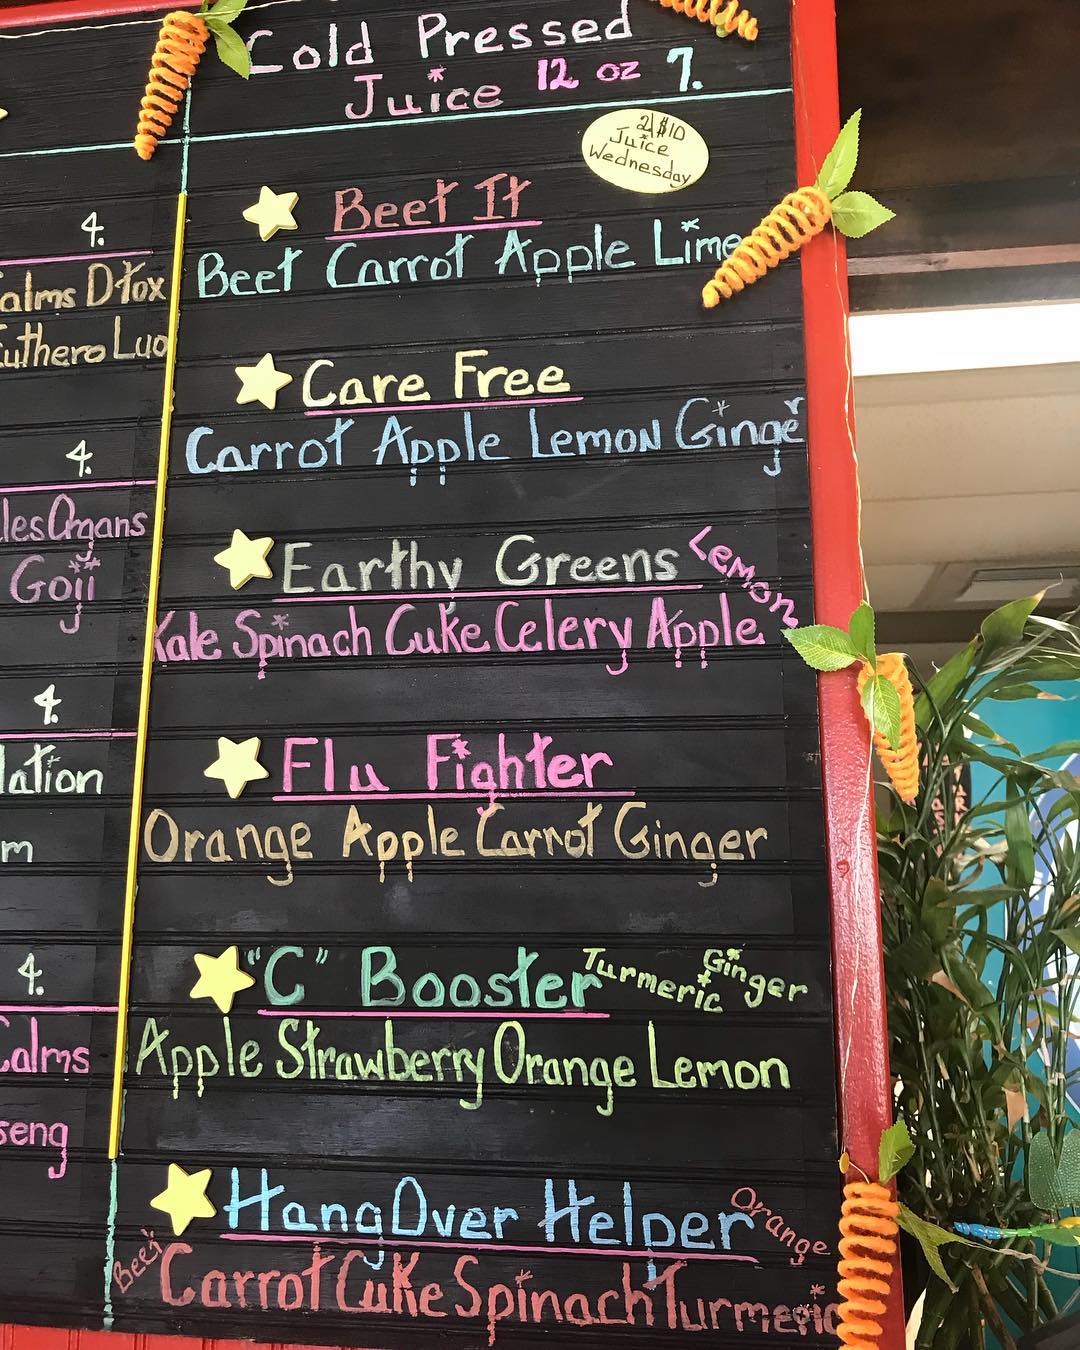 Cold Pressed
Juice 12 oz 7.
2/$10
Juice
Wednesday
Beet It
Beet Carrot Apple Lime
Care Free
Carrot Apple Lemon Ginger
Earthy Greens Lemon
Kale Spinach Cuke Celery Apple
Flu Fighter
Orange Apple Carrot Ginger
"C" Booster Turmeric Ginger
Apple Strawberry Orange Lemon
HangOver Helper Orange
Beet Carrot Cuke Spinach Turmeric
4.
alms Dtox
Euthero Luo
4.
les Organs
Goji
4.
lation
m
4.
Calms
seng